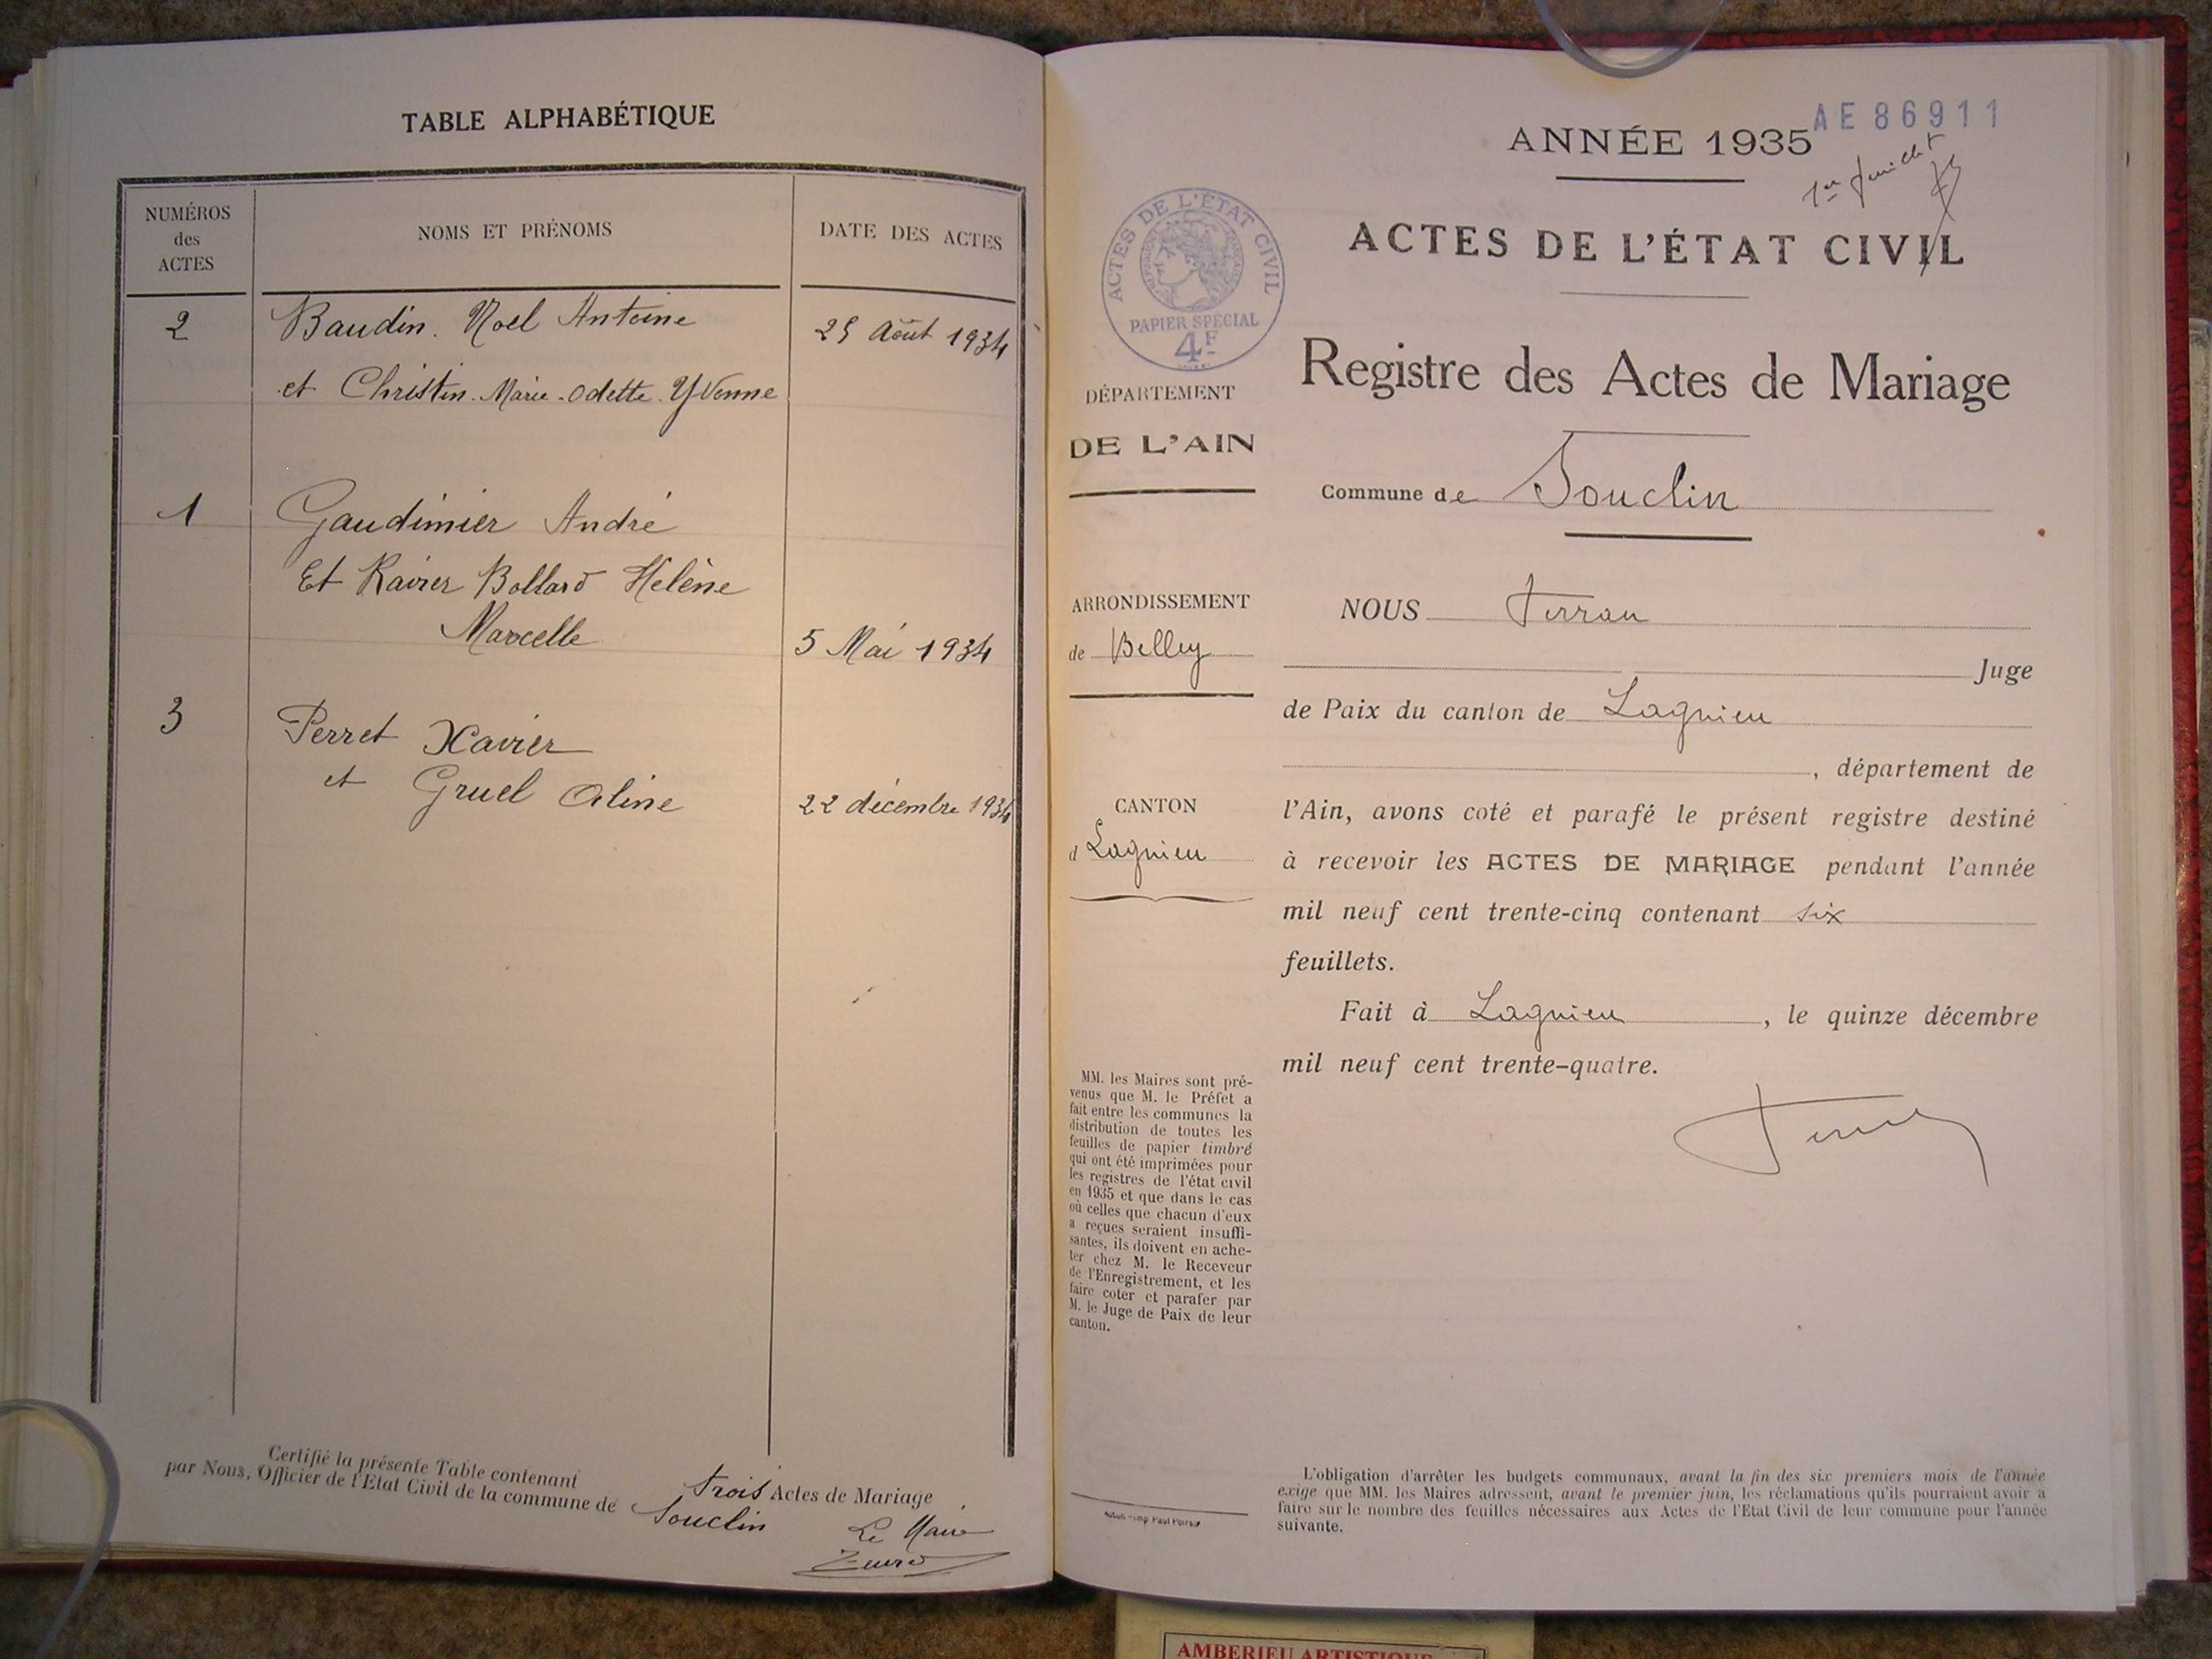 TABLE ALPHABÉTIQUE
NUMÉROS
des
ACTES
NOMS ET PRÉNOMS
DATE DES ACTES
2
Baudin. Noel Antoine
25 Août 1934
et Christin. Marie-Odette-Yvonne
1
Gaudimier André
Et Ravier Bollard Hélène
Marcelle
5 Mai 1934
3
Perret Xavier
et Gruel Aline
22 décembre 1934
Certifié la présente Table contenant trois Actes de Mariage
par Nous, Officier de l'Etat Civil de la commune de Souclin
Le Maire
AE86911
ANNÉE 1935
1er feuillet
ACTES DE L'ÉTAT CIVIL
ACTES DE L'ÉTAT CIVIL
RÉPUBLIQUE FRANÇAISE
PAPIER SPÉCIAL
4F
Registre des Actes de Mariage
DÉPARTEMENT
DE L'AIN
Commune de Souclin
ARRONDISSEMENT
de Belley
CANTON
d Lagnieu
NOUS
Juge
de Paix du canton de Lagnieu
, département de
l'Ain, avons coté et parafé le présent registre destiné
à recevoir les ACTES DE MARIAGE pendant l'année
mil neuf cent trente-cinq contenant six
feuillets.
Fait à Lagnieu, le quinze décembre
mil neuf cent trente-quatre.
MM. les Maires sont pré-
venus que M. le Préfet a
fait entre les communes la
distribution de toutes les
feuilles de papier timbré
qui ont été imprimées pour
les registres de l'état civil
en 1935 et que dans le cas
où celles que chacun d'eux
a reçues seraient insuffi-
santes, ils doivent en ache-
ter chez M. le Receveur
de l'Enregistrement, et les
faire coter et parafer par
M. le Juge de Paix de leur
canton.
L'obligation d'arrêter les budgets communaux, avant la fin des six premiers mois de l'année
exige que MM. les Maires adressent, avant le premier juin, les réclamations qu'ils pourraient avoir a
faire sur le nombre des feuilles nécessaires aux Actes de l'Etat Civil de leur commune pour l'année
suivante.
AMBERIEU ARTISTIQUE